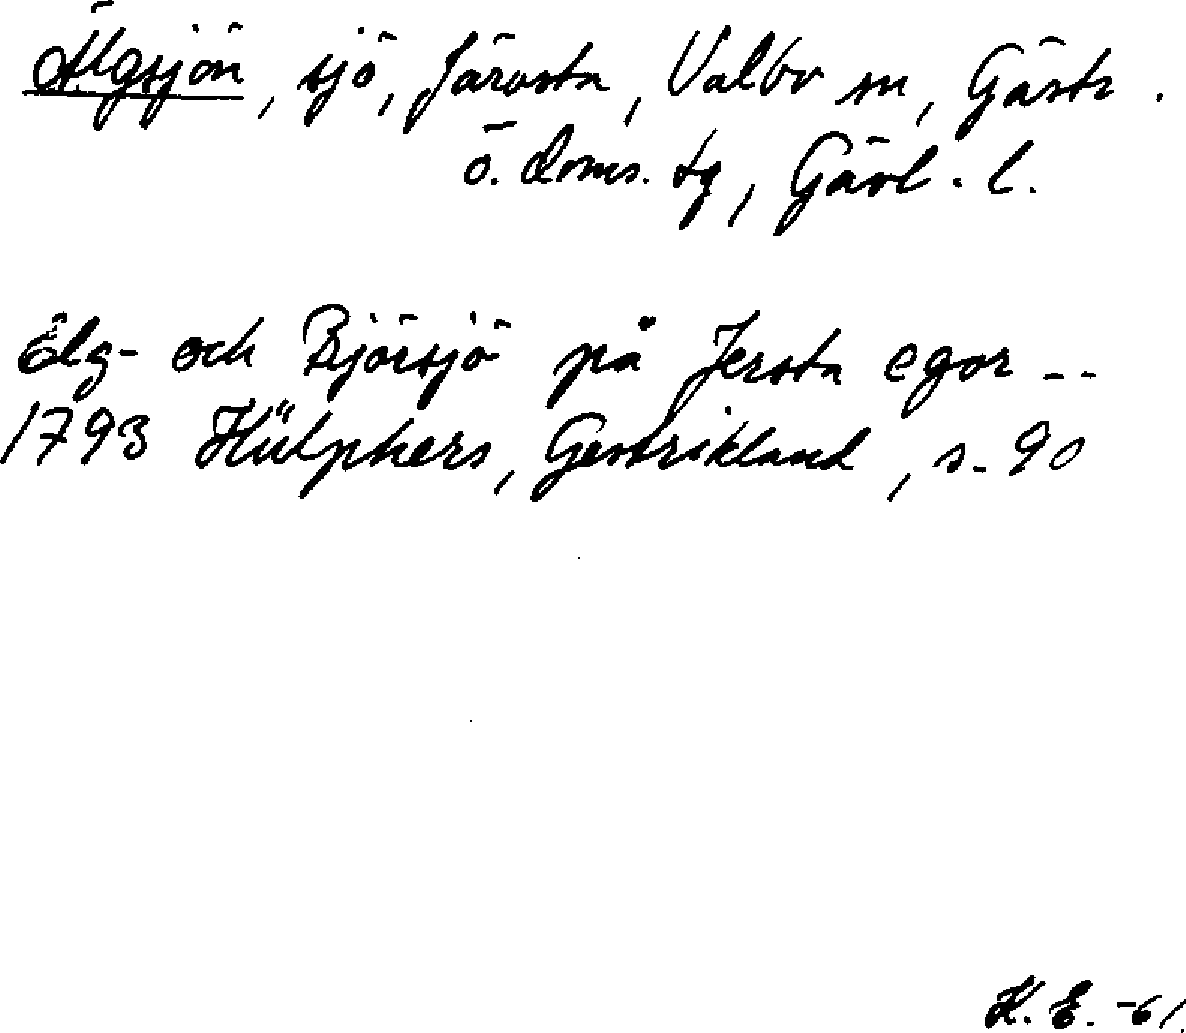 Älgsjön, sjö, Järvsta, Valbo sn, Gästr.
ö. doms. tg, Gävl. l.
Elg- och Björsjö på Jersta egor --
1793 Hülphers, Gestrikland, s. 90
K. E. -61.